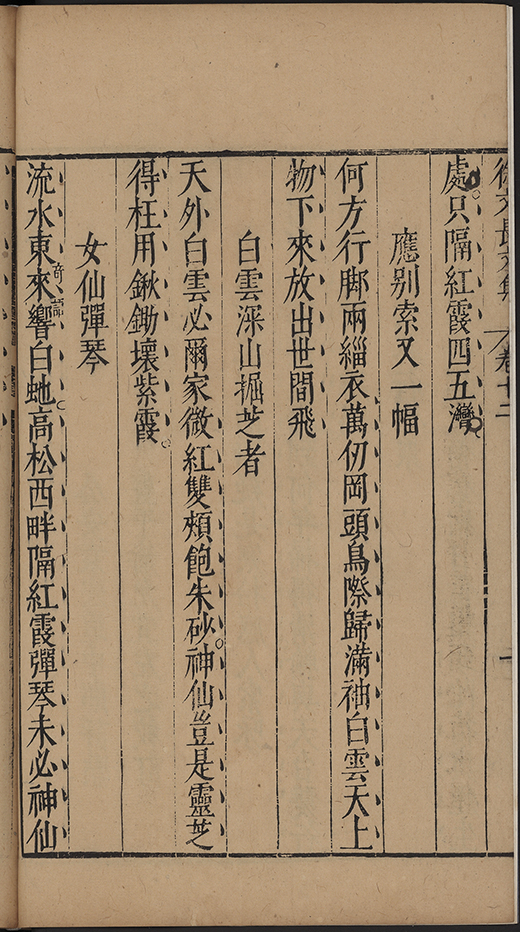 徐文長文集 卷十二
處只隔紅霞四五灣
應别索又一幅
何方行脚兩緇衣萬仞岡頭鳥際歸滿袖白雲天上
物下來放出世間飛
白雲深山掘芝者
天外白雲必爾家微紅雙頰飽朱砂神仙豈是靈芝
得枉用鍬鋤壞紫霞
女仙彈琴
流水東來響白虵高松西畔隔紅霞彈琴未必神仙
奇語